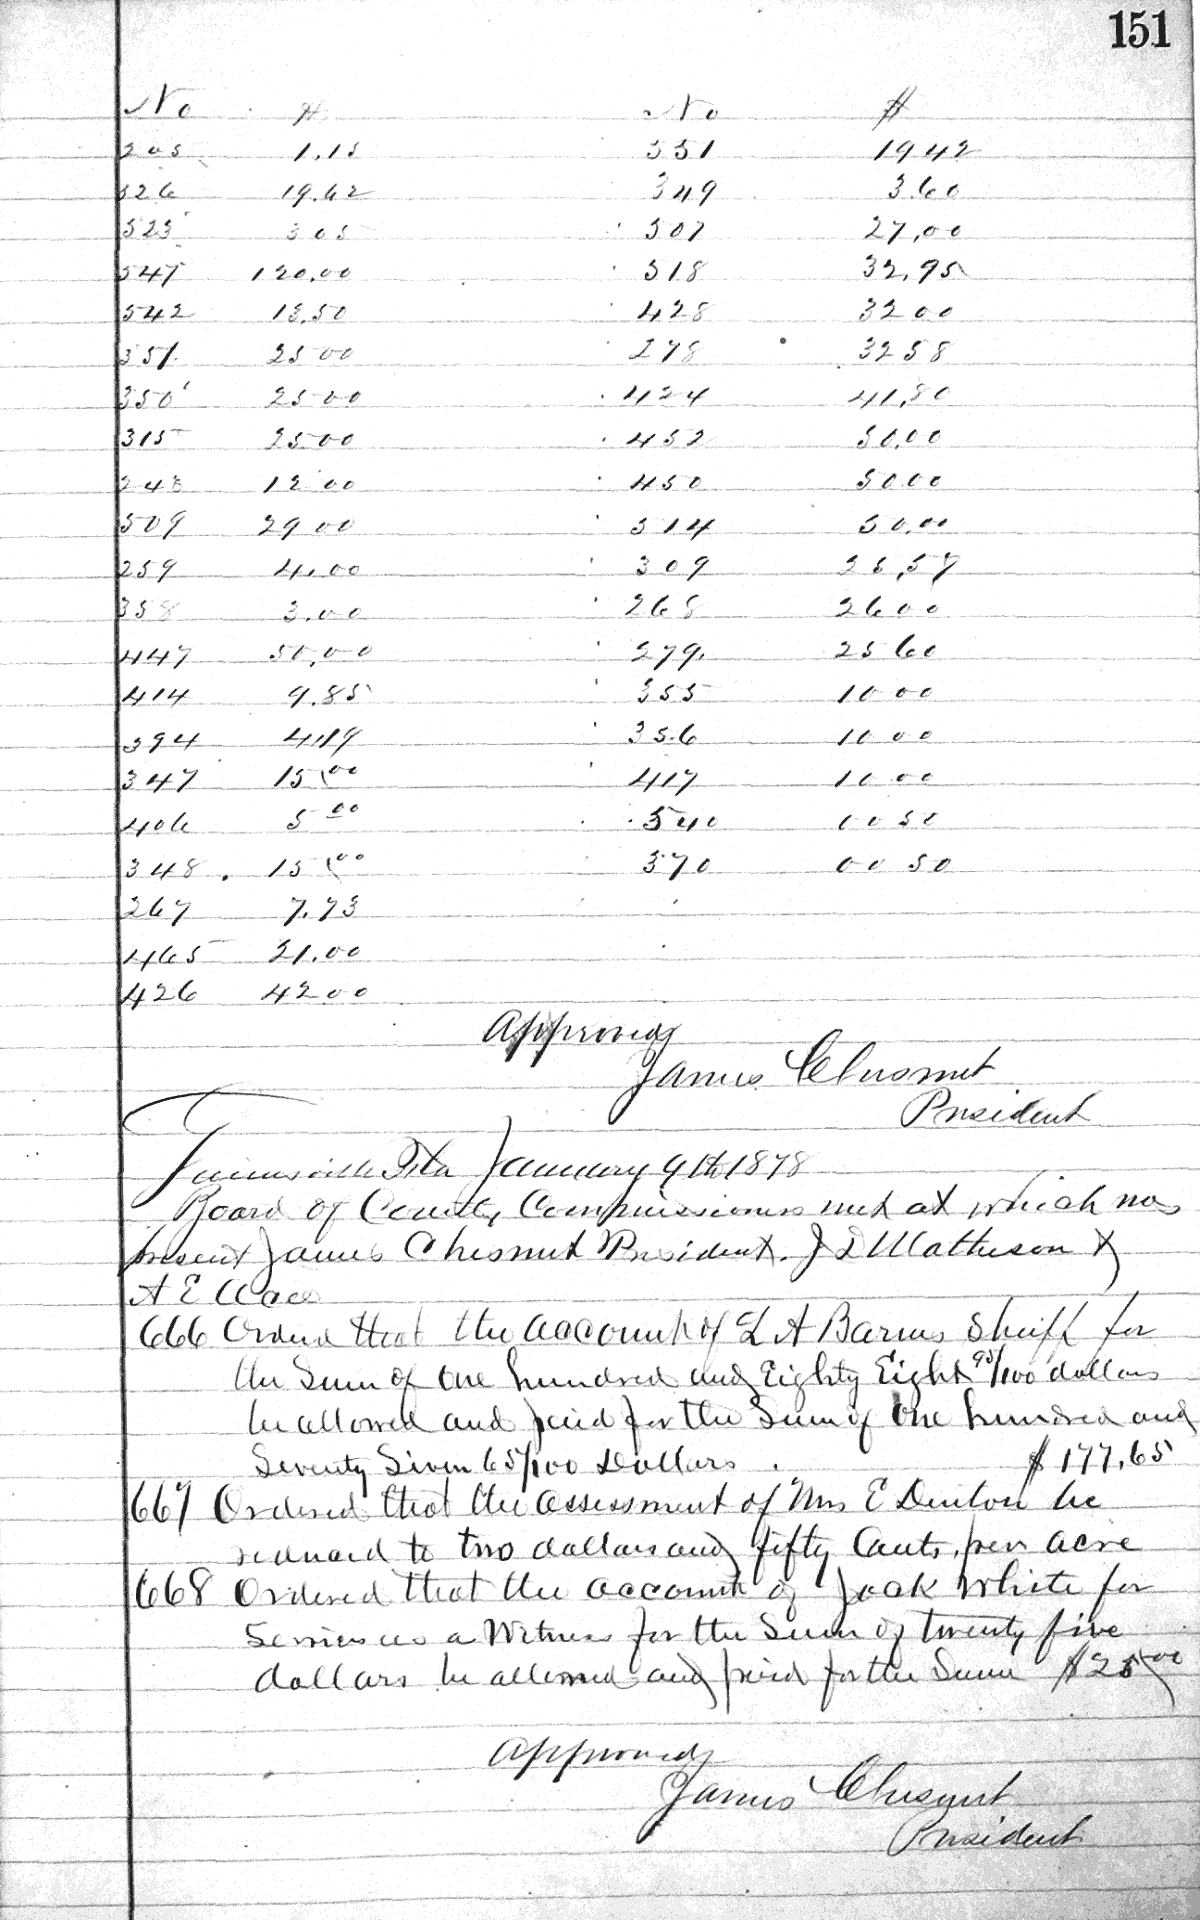 151
No $ No $
205 1.15 331 19.42
326 19.62 349 3.60
523 3 05 507 27,00
547 120.00 518 32,95
542 13,50 428 32 00
351. 25 00 278 32 58
350 25 00 424 41,80
315 25 00 452 50,00
248 12 00 450 50.00
509 29 00 514 50,00
259 4.00 309 25,57
358 3.00 268 26 00
447 50,00 279. 25 60
414 9.85 355 10 00
394 4.19 356 10 00
347 15 00 417 10 00
406 5 00 540 00 50
348. 15 00 370 00 50
267 7.73
465 21.00
426 42 00
Approved
James Chesnut
President
Gainesville Fla January 9th 1878
Board of County Commissioners met at which was
present James Chesnut President. J D Matheson &
A E
666 Ordered that the account of L A Barnes Sheriff for
the Sum of One hundred and Eighty Eight 95/100 dollars
be allowed and paid for the Sum of One hundred and
Seventy Seven 65/100 Dollars. $177.65
667 Ordered that the assessment of Mrs E Denton be
reduced to two dollars and fifty Cents per acre
668 Ordered that the account of Jack White for
Services as a Witness for the Sum of twenty five
dollars be allowed and paid for the Sum $25 00
Approved
James Chesnut
President